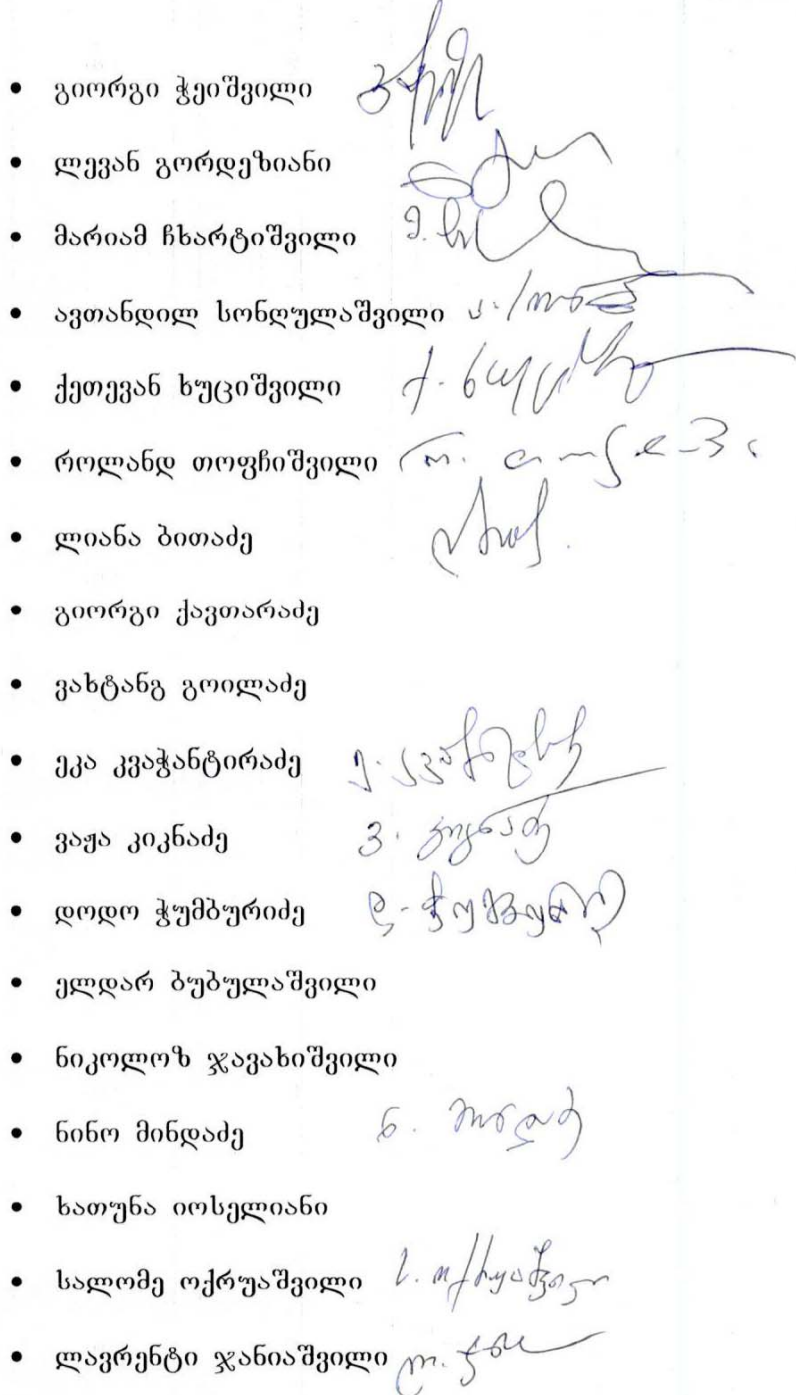 • გიორგი ჭეიშვილი
• ლევან გორდეზიანი
• მარიამ ჩხარტიშვილი
• ავთანდილ სონღულაშვილი
• ქეთევან ხუციშვილი
• როლანდ თოფჩიშვილი
• ლიანა ბითაძე
• გიორგი ქავთარაძე
• ვახტანგ გოილაძე
• ეკა კვაჭანტირაძე
• ვაჟა კიკნაძე ვ. კიკნაძე
• დოდო ჭუმბურიძე დ. ჭუმბურიძე
• ელდარ ბუბულაშვილი
• ნიკოლოზ ჯავახიშვილი
• ნინო მინდაძე ნ. მინდაძე
• ხათუნა იოსელიანი
• სალომე ოქრუაშვილი ს. ოქრუაშვილი
• ლავრენტი ჯანიაშვილი